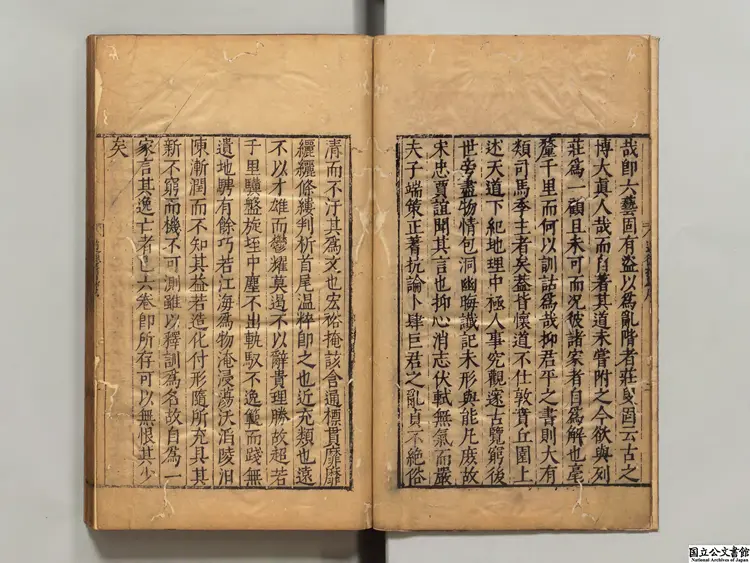 哉即六藝固有盜以為亂階者莊叟固云古之
博大真人哉而自著其道未嘗附之今欲與列
莊為一顧且未可而况彼諸家者自為解也毫
釐千里而何以訓詁為哉抑君平之書則大有
類司馬季主者矣蓋皆懷道不仕敦賁丘園上
述天道下紀地理中極人事究觀邃古覽窮後
世旁盡物情包洞幽晦識記未形與能凡庶故
宋忠賈誼聞其言也抑心消志伏軾無氣而嚴
夫子端策正蓍抗論卜肆巨君之亂貞不絶俗
清而不汙其為文也宏裕掩該含通標貫靡靡
纚纚條縷判析首尾温粹即之也近充類也遠
不以才雄而鬱耀莫遏不以辭貴理勝故超若
千里驥盤旋垤中塵不出軌馭不逸範而踐無
遺地騁有餘巧若江海為物淹浸蕩沃滔陵汨
陳漸潤而不知其益若造化付形隨所充具其
新不窮而機不可測雖以釋訓為名故自為一
家言其逸亡者已六卷即所存可以無恨其少
矣
国立公文書館
National Archives of Japan